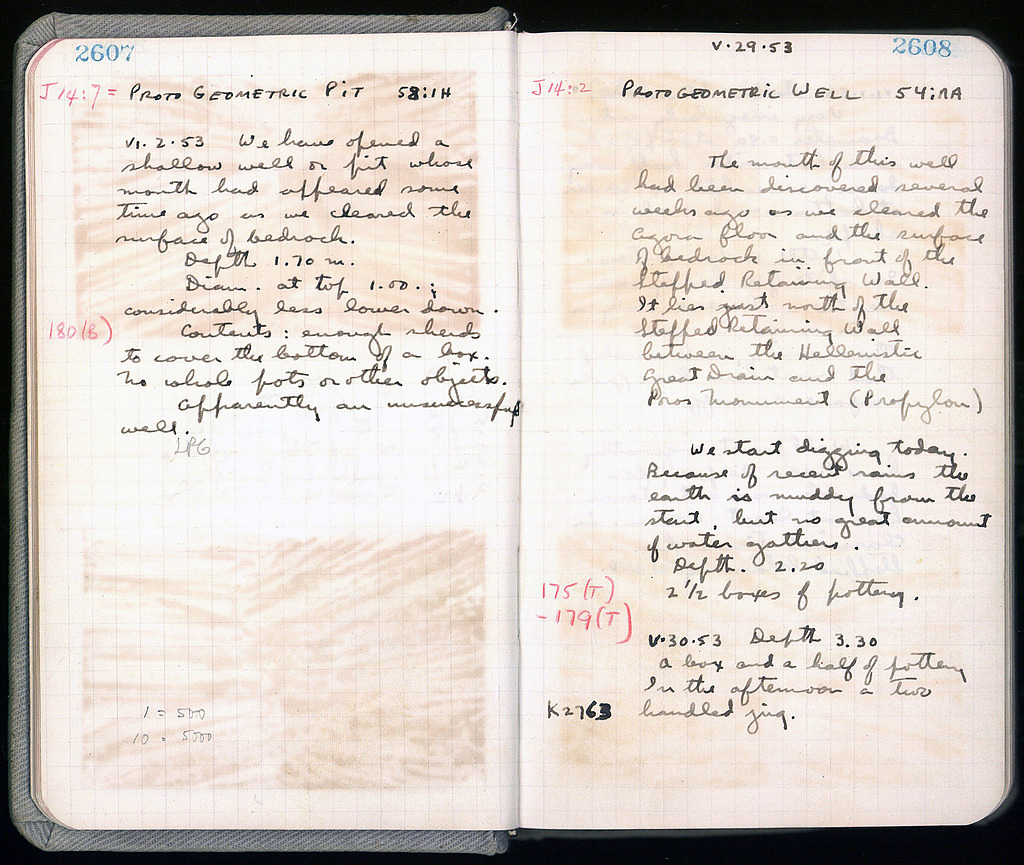 2607
J 14:7 = PROTOGEOMETRIC PIT 58:IH
VI.2.53 We have opened a
shallow well or pit whose
mouth had appeared some
time ago as we cleared the
surface of bedrock.
Depth 1.70 m.
Diam. at top 1.00.;
considerably less lower down.
180(B) Contents: enough sherds
to cover the bottom of a box.
No whole pots or other objects.
Apparently an unsuccessful
well.
LPG
1 = 500
10 = 5000
V.29.53 2608
J 14:2 PROTOGEOMETRIC WELL 54:
The mouth of this well
had been discovered several
weeks ago as we cleared the
Agora floor and the surface
of bedrock in front of the
Stepped Retaining Wall.
It lies just north of the
Stepped Retaining Wall
between the Hellenistic
Great Drain and the
Poros Monument (Propylon)
We start digging today.
Because of recent rains the
earth is muddy from the
start, but no great amount
of water gathers.
Depth. 2.20
175(T) 2 1/2 boxes of pottery.
-179(T)
V.30.53 Depth 3.30
A box and a half of pottery
In the afternoon a two
K2763 handled jug.